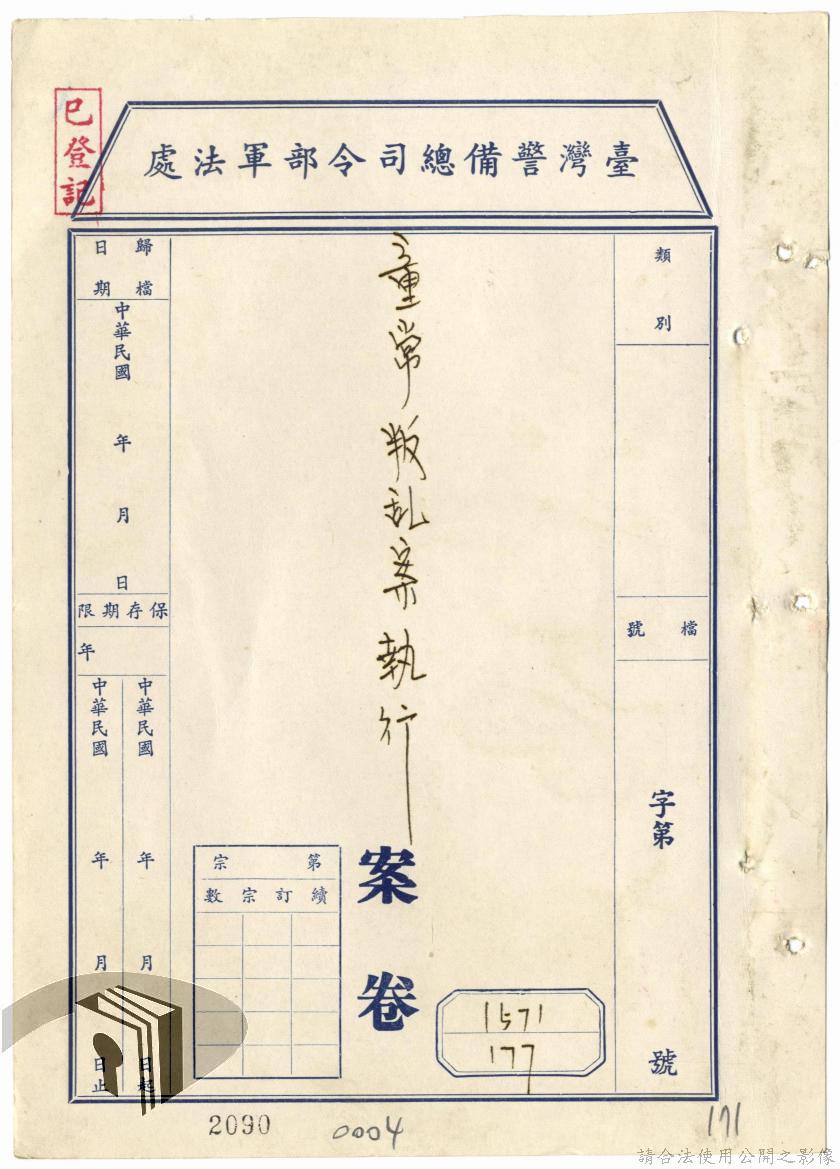 已登記
臺灣警備總司令部軍法處
類別
檔號
字第
號
童常叛乱案執行
案卷
1571
177
第宗
續訂宗數
歸檔日期
中華民國 年 月 日
保存期限
年
中華民國 年 月 日起
中華民國 年 月 日止
2090
0004
171
請合法使用公開之影像